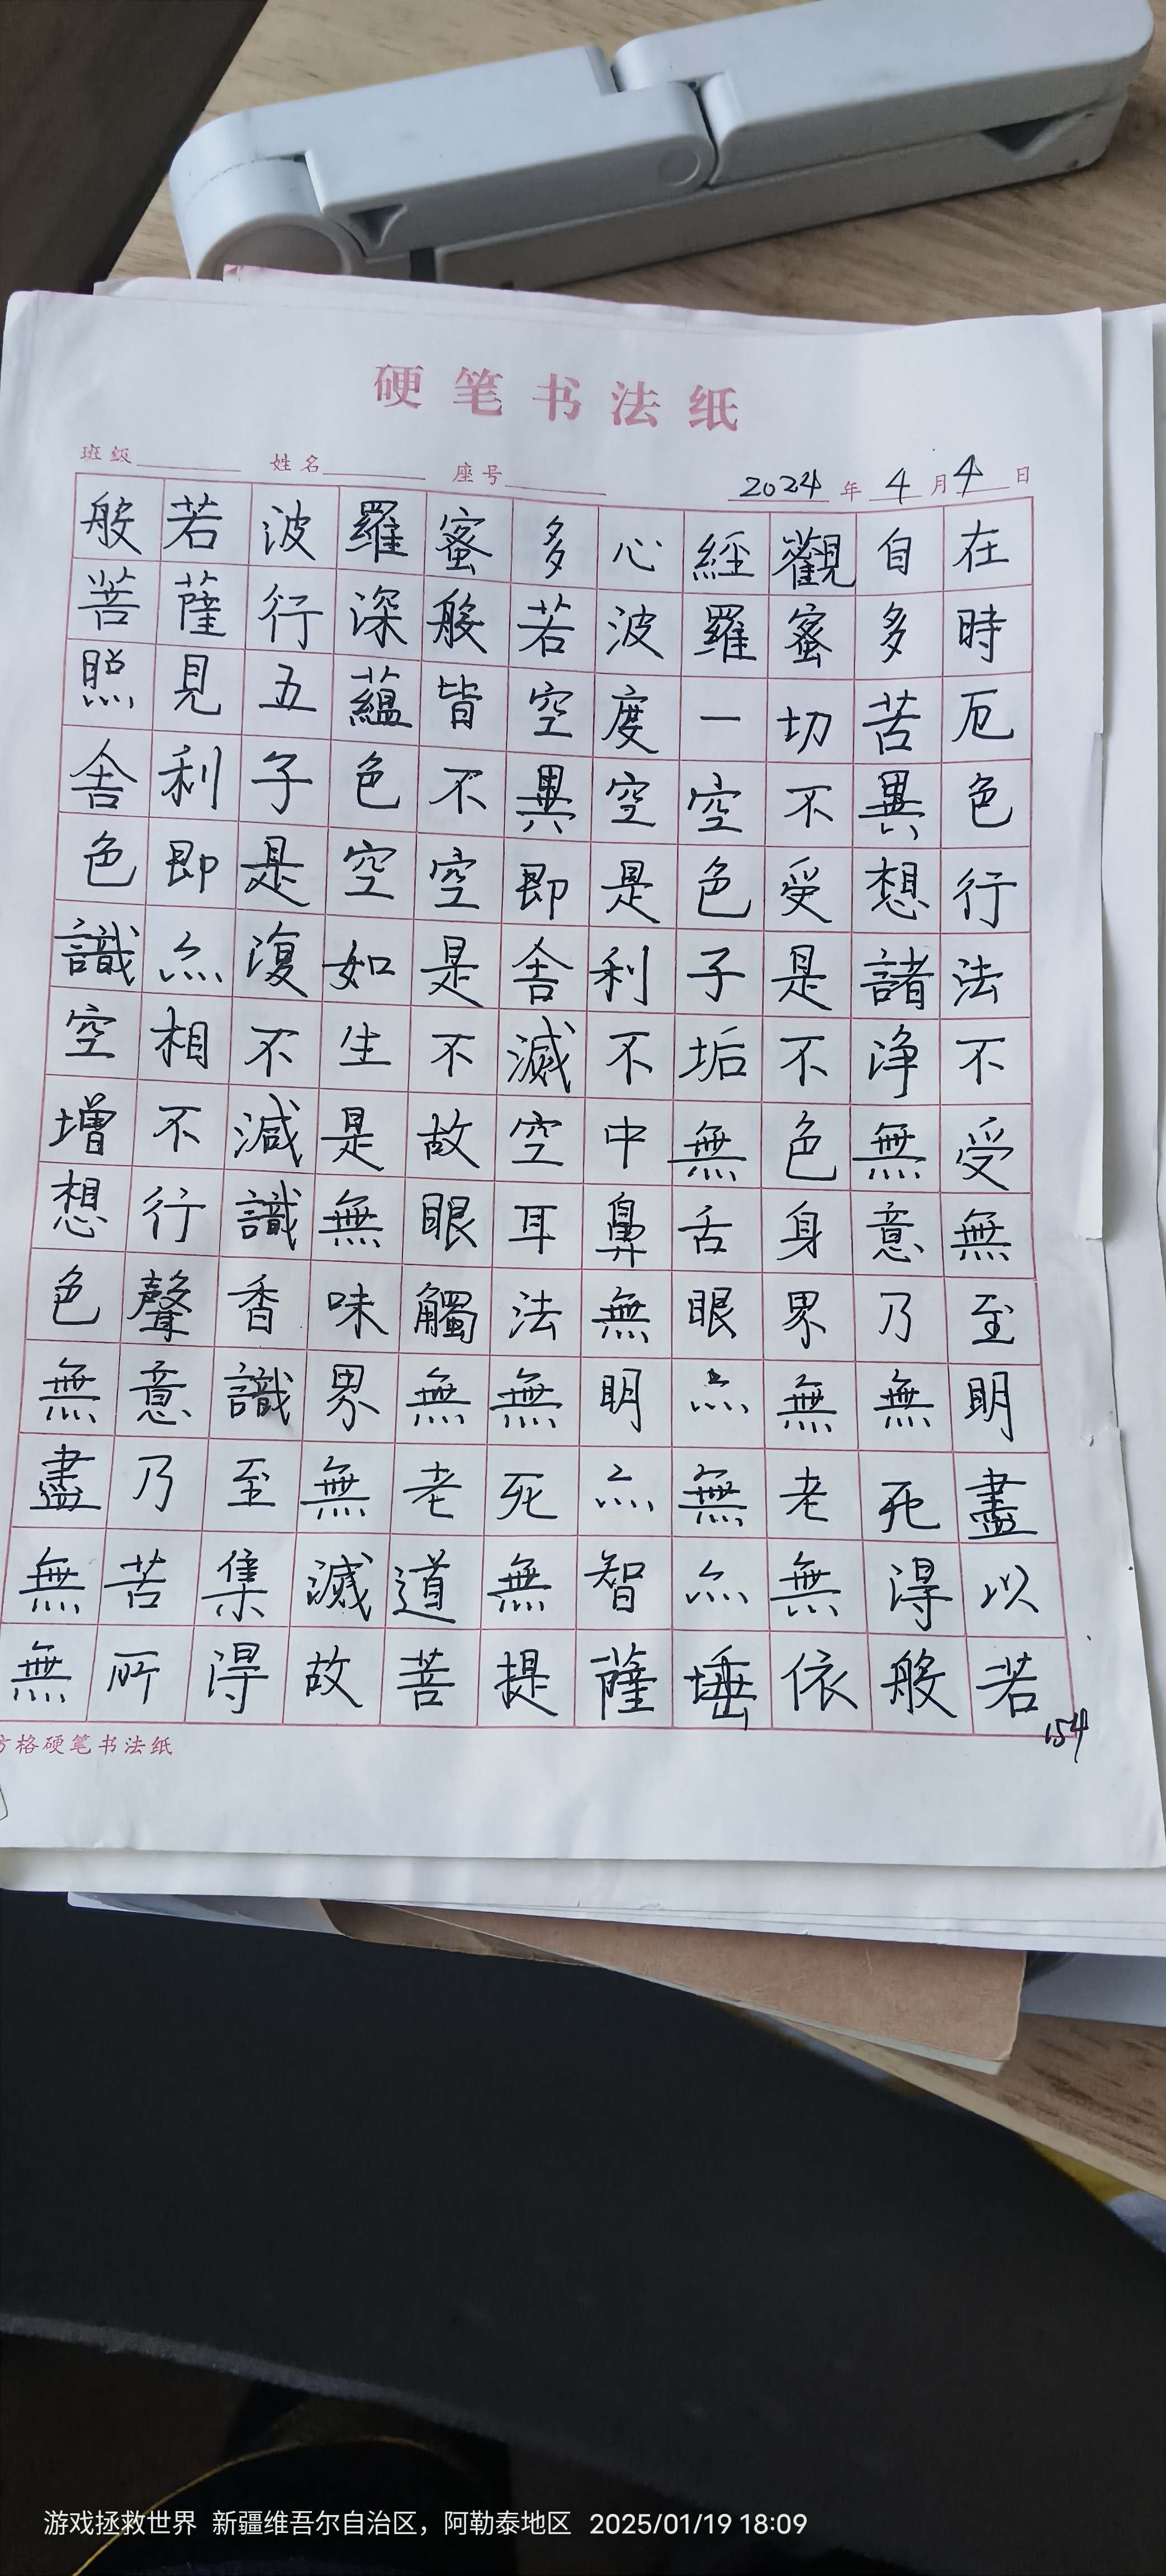 硬笔书法纸
班级 姓名 座号 2024年4月4日
般若波羅蜜多心經觀自在
菩薩行深般若波羅蜜多時
照見五蘊皆空度一切苦厄
舍利子色不異空空不異色
色即是空空即是色受想行
識亦復如是舍利子是諸法
空相不生不滅不垢不净不
增不減是故空中無色無受
想行識無眼耳鼻舌身意無
色聲香味觸法無眼界乃至
無意識界無無明亦無無明
盡乃至無老死亦無老死盡
無苦集滅道無智亦無得以
無所得故菩提薩埵依般若
154
方格硬笔书法纸
游戏拯救世界 新疆维吾尔自治区，阿勒泰地区 2025/01/19 18:09